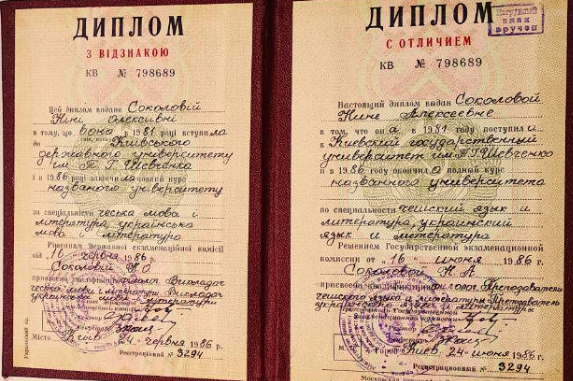 ДИПЛОМ
З ВІДЗНАКОЮ
КВ № 798689
Цей диплом видано Соколовій
Ніні Олексіївні
в тому, що вона в 1981 році вступила
до Київського
державного університету
ім. Т. Г. Шевченка
і в 1986 році закінчила повний курс
названого університету
за спеціальністю чеська мова і
література, українська
мова і література
Рішенням Державної екзаменаційної комісії
від 16 червня 1986 р.
Соколовій Н. О.
філолог Викладач
чеської мови і літератури Викладач
української мови і літератури
Місто Київ, 24 червня 1986 р.
Реєстраційний № 3294
ДИПЛОМ
С ОТЛИЧИЕМ
КВ № 798689
Нагрудный
знак
вручен
Настоящий диплом выдан Соколовой
Нине Алексеевне
в том, что она в 1981 году поступила
в Киевский государственный
университет им. Т. Г. Шевченко
и в 1986 году окончила полный курс
названного университета
по специальности чешский язык и
литература, украинский
язык и литература
Решением Государственной экзаменационной
комиссии от 16 июня 1986 г.
Соколовой Н. А.
присвоена филолог Преподаватель
чешского языка и литературы Преподаватель
украинского языка и литературы
Город Киев, 24 июня 1986 г.
Регистрационный № 3294